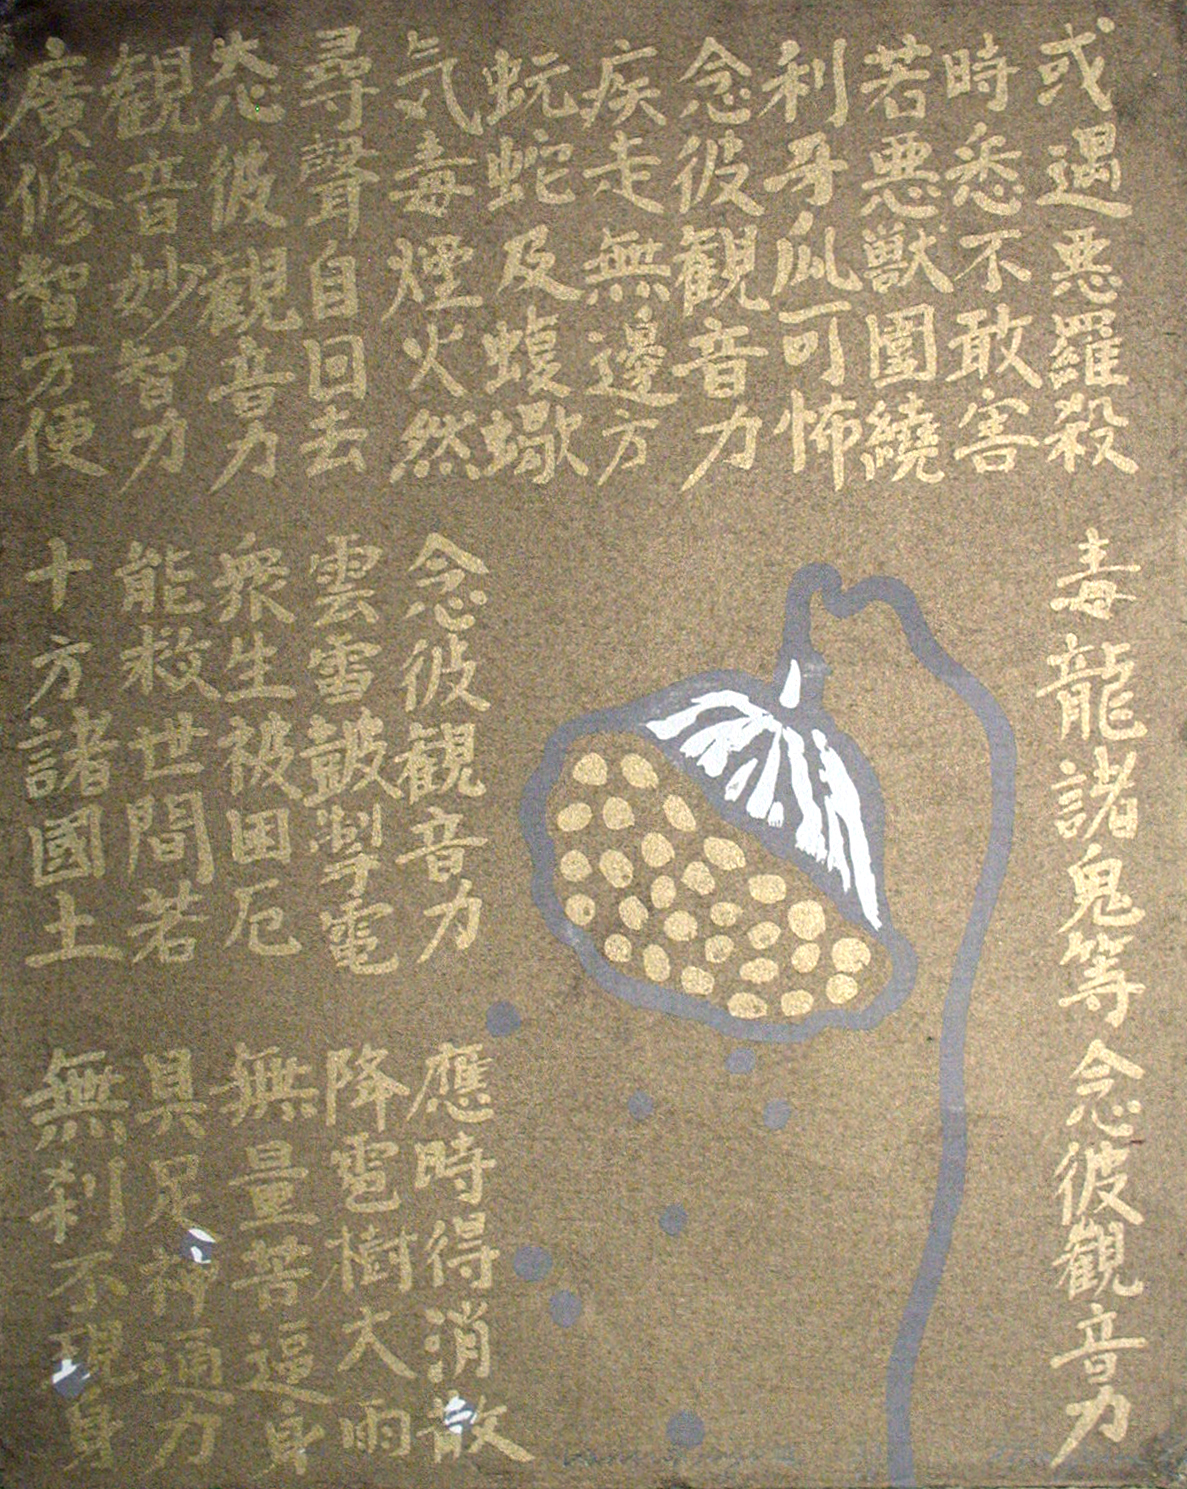 或遇悪羅殺 毒龍諸鬼等 念彼観音力
時悉不敢害
若悪獣圍繞
利牙瓜可怖
念彼観音力
疾走無邊方
蚖蛇及蝮蠍
気毒煙火然 念彼観音力 應時得消散
尋聲自回去 雲雷皷掣電 降雹樹大雨
念彼観音力 衆生被困厄 無量苦逼身
観音妙智力 能救世間若 具足神通力
廣修智方便 十方諸國土 無刹不現身